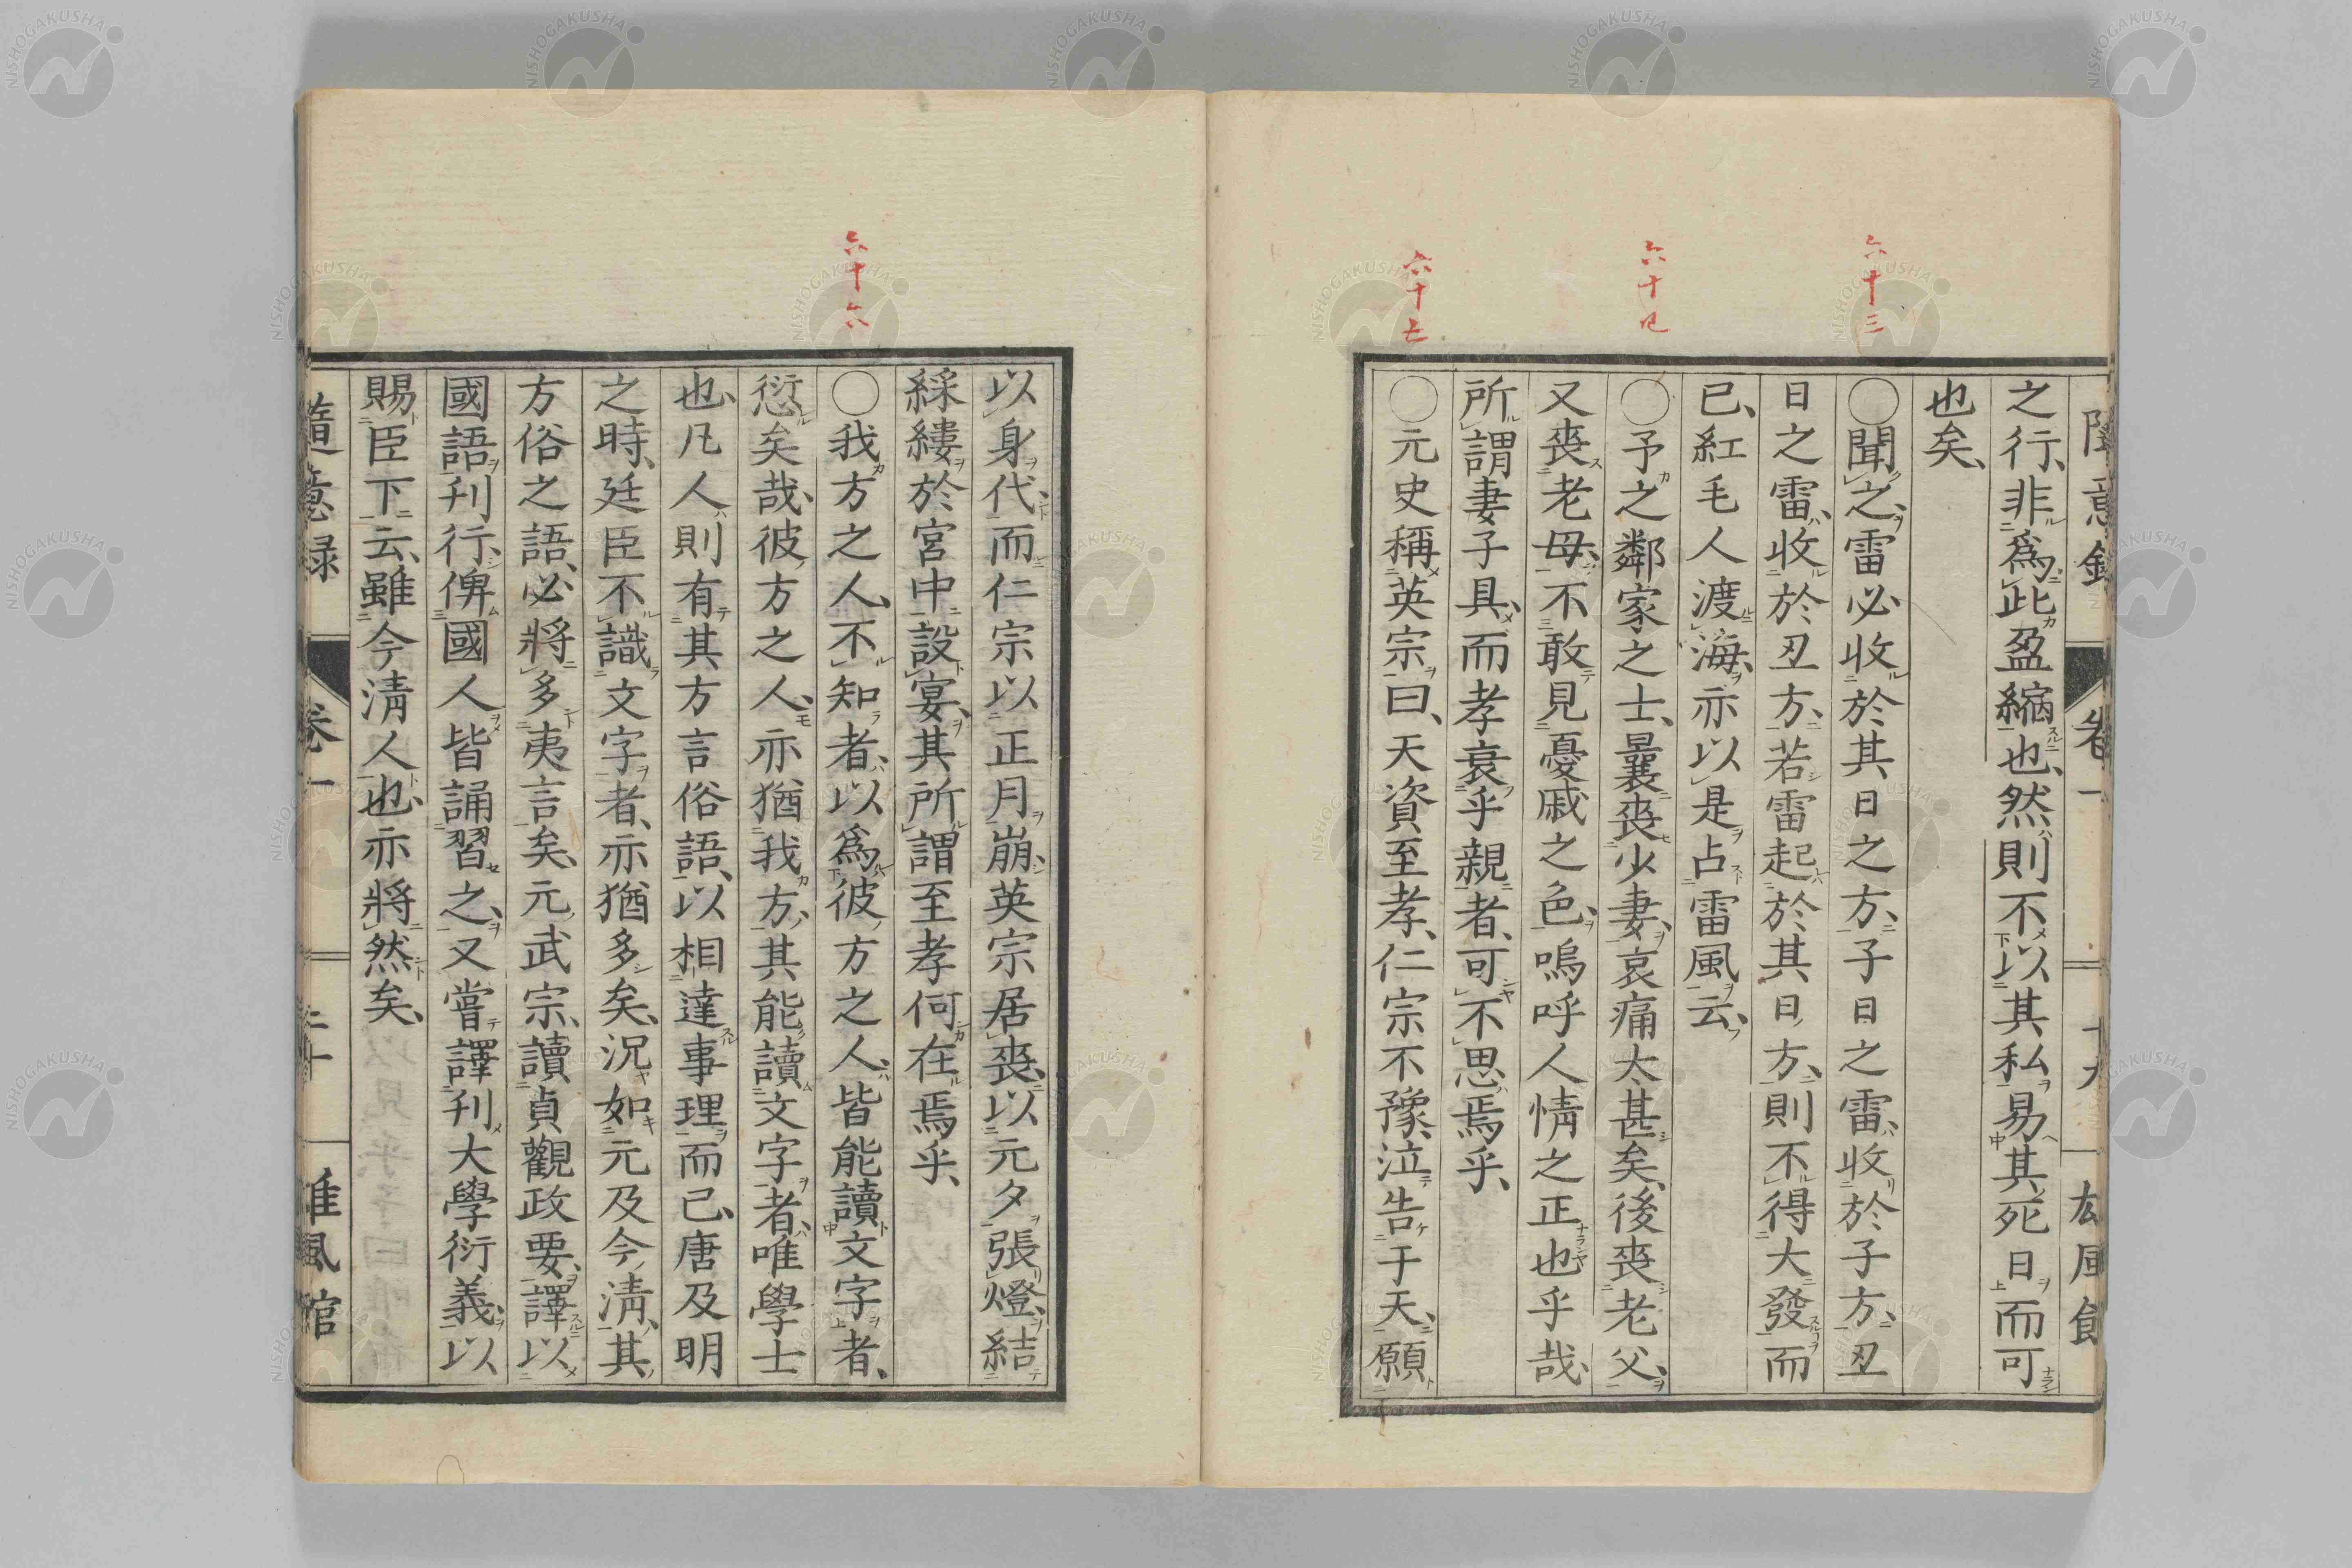 之行、非爲此盈縮也、然則不以其私易其死日而可
也矣、
六十三
〇聞之、雷必收於其日之方、子日之雷、收於子方、丑
日之雷、收於丑方、若雷起於其日方、則不得大發而
已、紅毛人渡海、亦以是占雷風云、
〇予之鄰家之士、曩喪少妻、哀痛太甚矣、後喪老父、
又喪老母、不敢見憂戚之色、嗚呼人情之正也乎哉、
所謂妻子具、而孝衰乎親者、可不思焉乎、
〇元史稱英宗曰、天資至孝、仁宗不豫、泣告于天、願
以身代、而仁宗以正月崩、英宗居喪、以元夕張燈、結
綵縷於宮中設宴、其所謂至孝何在焉乎、
六十六
〇我方之人、不知者、以爲彼方之人、皆能讀文字者、
愆矣哉、彼方之人、亦猶我方、其能讀文字者、唯學士
也、凡人則有其方言俗語、以相達事理而已、唐及明
之時、廷臣不識文字者、亦猶多矣、況如元及今淸、其
方俗之語、必將多夷言矣、元武宗、讀貞觀政要、譯以
國語刊行、俾國人皆誦習之、又嘗譯刊大學衍義、以
賜臣下云、雖今淸人也、亦將然矣、
卷一
NISHOGAKUSHA